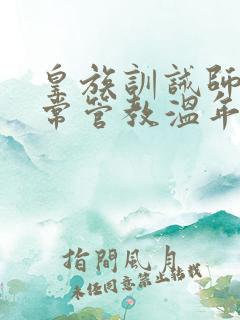 皇族訓誡師
常管教溫年
指間風月
未經同意禁止轉載